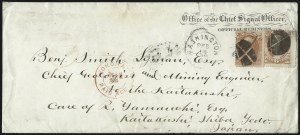 Office of the Chief Signal Officer,
OFFICIAL BUSINESS.
WASHINGTON
Benj. Smith Lyman, Esq.
Chief Geologist and Mining Engineer
to the Kaitakushi
Care of
Yamanouchi, Esq.
Kaitakushi, Shiba, Yedo,
Japan